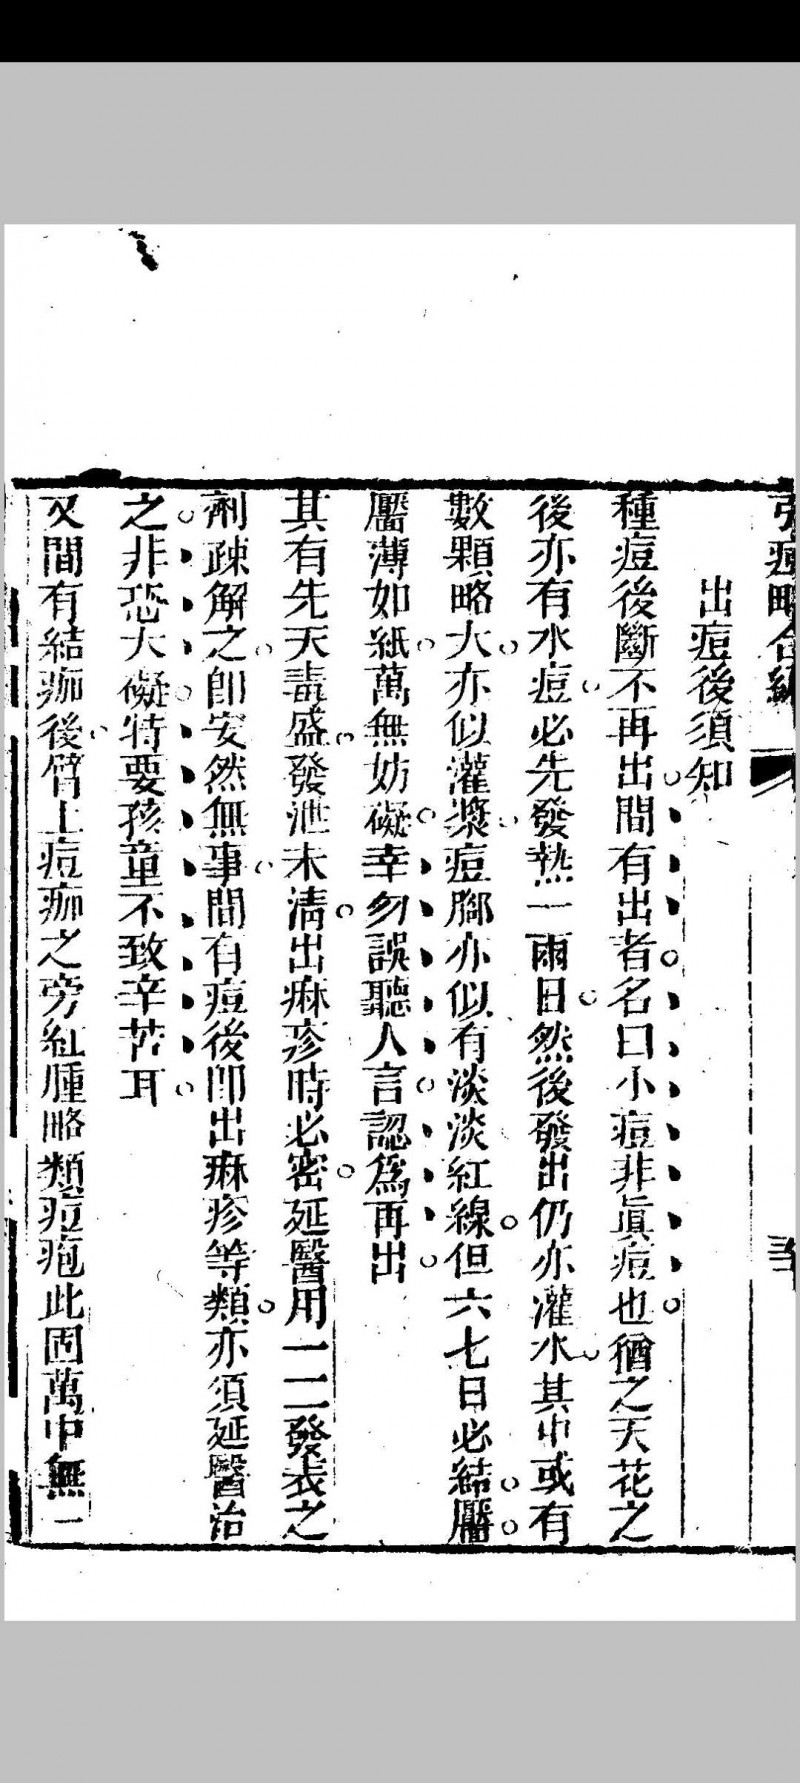 引痘略合編
出痘後須知
種痘後斷不再出間有出者名曰小痘非眞痘也猶之天花之
後亦有水痘必先發熱一兩日然後發出仍亦灌水其中或有
數顆略大亦似灌漿痘腳亦似有淡淡紅線但六七日必結靨
靨薄如紙萬無妨礙幸勿誤聽人言認爲再出
其有先天毒盛發泄未清出痳疹時必密延醫用一二發表之
劑疎解之卽安然無事間有痘後卽出痳疹等類亦須延醫治
之非恐大礙特要孩童不致辛苦耳
又間有結痂後臂上痘痂之旁紅腫略類痘疱此固萬中無一